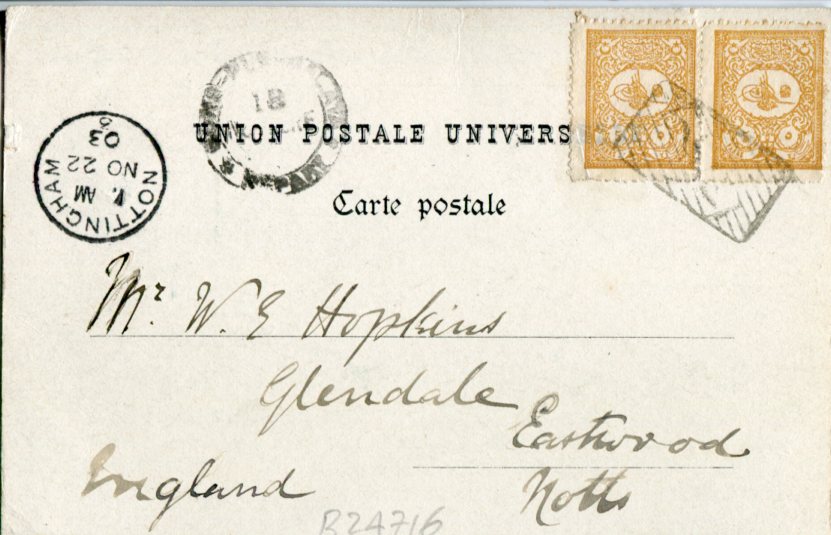 UNION POSTALE UNIVERS
Carte postale
NOTTINGHAM
AM
NO 22
03
18
DEPART
Mr. W. E Hopkins
Glendale
Eastwood
Notts
England
B24716